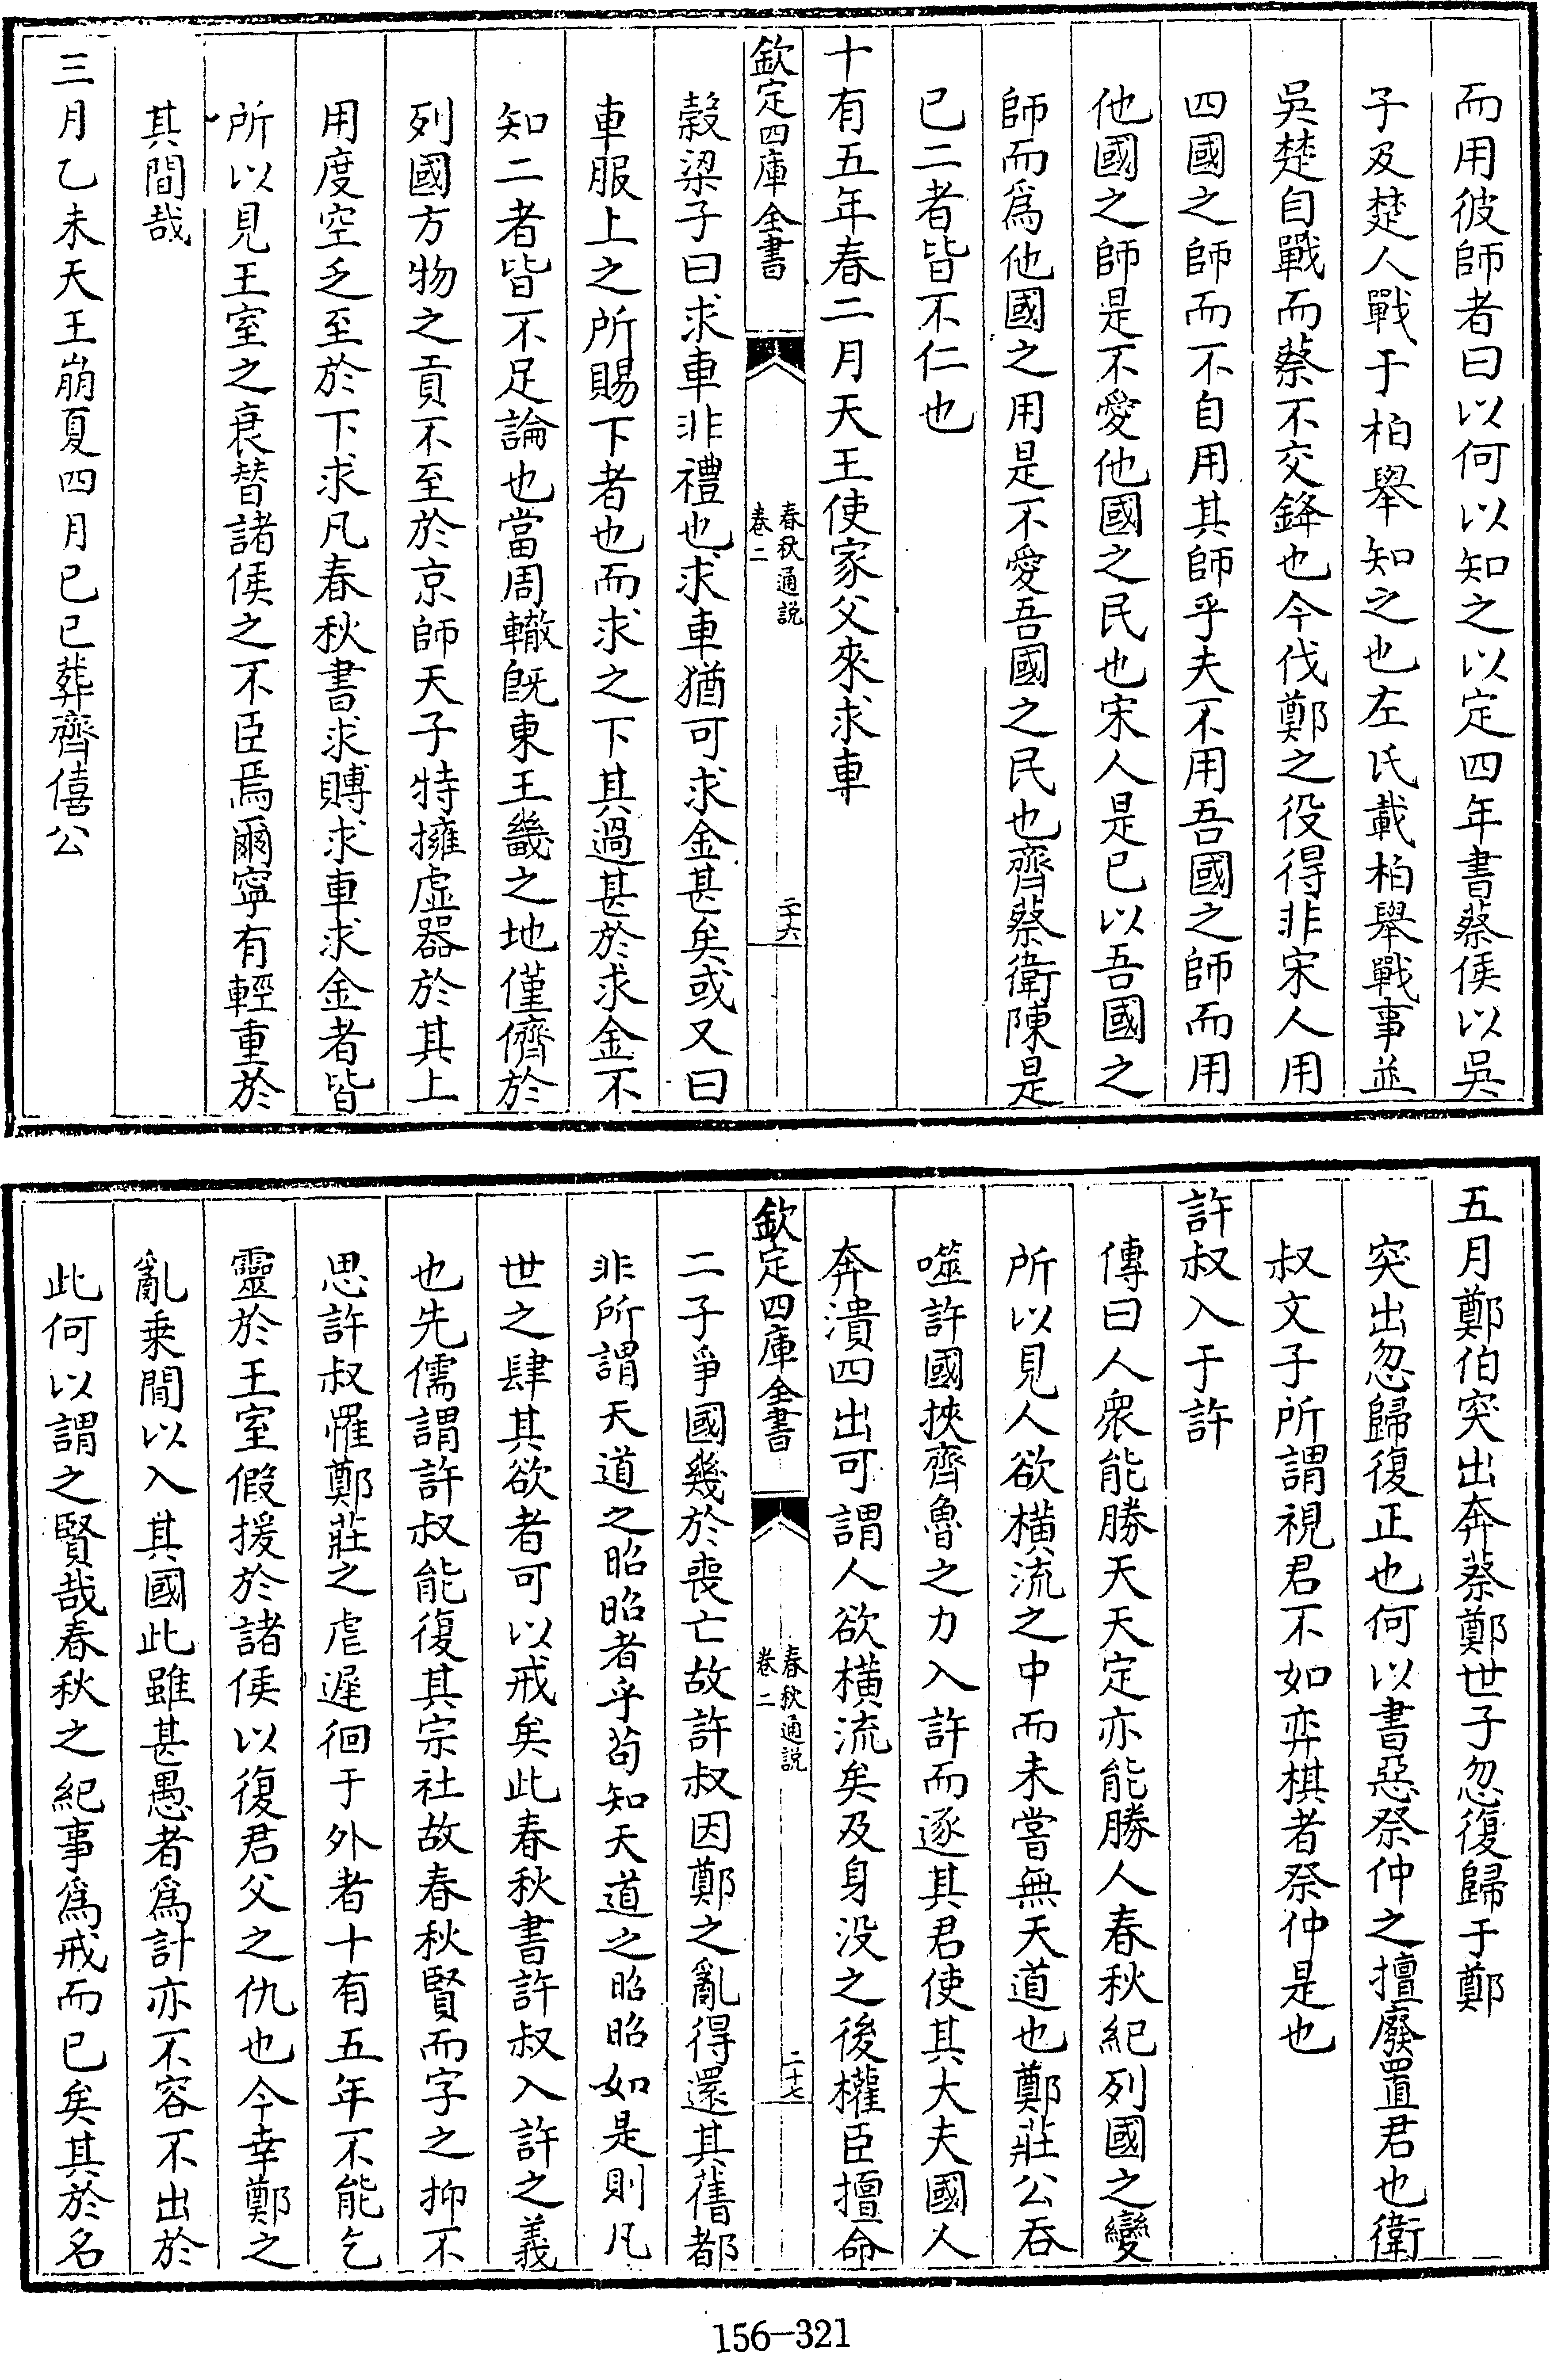 而用彼師者曰以何以知之以定四年書蔡侯以吳
子及楚人戰于柏舉知之也左氏載柏舉戰事並
吳楚自戰而蔡不交鋒也今伐鄭之役得非宋人用
四國之師而不自用其師乎夫不用吾國之師而用
他國之師是不愛他國之民也宋人是已以吾國之
師而爲他國之用是不愛吾國之民也齊蔡衛陳是
已二者皆不仁也
十有五年春二月天王使家父來求車
欽定四庫全書
春秋通説
卷二
二十六
穀梁子曰求車非禮也求車猶可求金甚矣或又曰
車服上之所賜下者也而求之下其過甚於求金不
知二者皆不足論也當周轍旣東王畿之地僅儕於
列國方物之貢不至於京師天子特擁虛器於其上
用度空乏至於下求凡春秋書求賻求車求金者皆
所以見王室之衰替諸侯之不臣焉爾寧有輕重於
其間哉
三月乙未天王崩夏四月已已葬齊僖公
五月鄭伯突出奔蔡鄭世子忽復歸于鄭
突出忽歸復正也何以書惡祭仲之擅廢置君也衛
叔文子所謂視君不如弈棋者祭仲是也
許叔入于許
傳曰人衆能勝天天定亦能勝人春秋紀列國之變
所以見人欲橫流之中而未嘗無天道也鄭莊公吞
噬許國挾齊魯之力入許而逐其君使其大夫國人
奔潰四出可謂人欲橫流矣及身没之後權臣擅命
欽定四庫全書
春秋通説
卷二
二十七
二子爭國幾於喪亡故許叔因鄭之亂得還其舊都
非所謂天道之昭昭者乎茍知天道之昭昭如是則凡
世之肆其欲者可以戒矣此春秋書許叔入許之義
也先儒謂許叔能復其宗社故春秋賢而字之抑不
思許叔罹鄭莊之虐遲徊于外者十有五年不能乞
靈於王室假援於諸侯以復君父之仇也今幸鄭之
亂乗間以入其國此雖甚愚者爲計亦不容不出於
此何以謂之賢哉春秋之紀事爲戒而已矣其於名
156-321